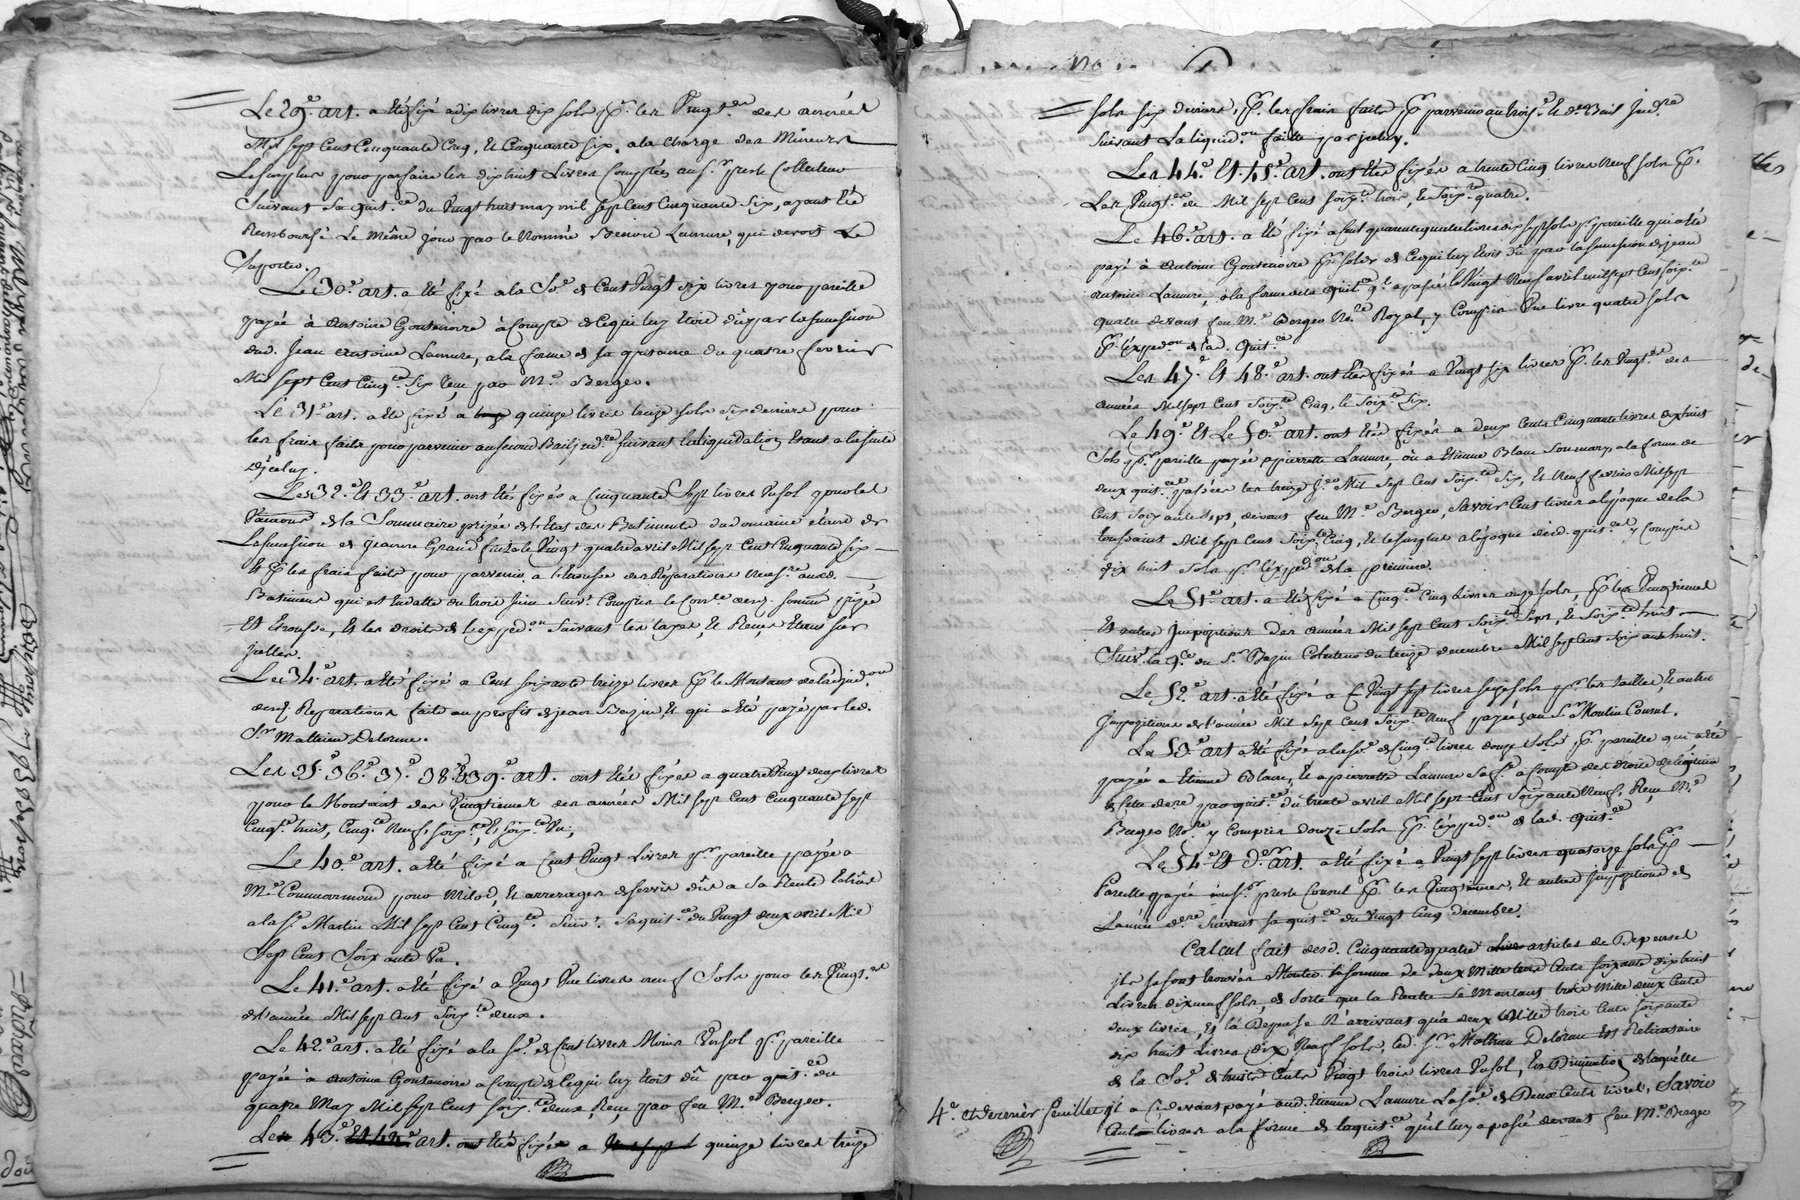 Le 29.e art. a été fixé a dix livres dix sols pr. les Vingt.es des années
Mil sept Cent Cinquante Cinq, Et Cinquante six, a la charge des Mineurs
Le surplus pour parfaire les dix huit Livres Comptées au sr. Collecteur
Suivant Sa quit.ce du Vingt huit may mil sept Cent Cinquante Six, ayant été
Remboursé Le Même Jour par le Nommé Benoit Lamure, qui devoit Le
Supporter.
Le 30.e art. a été fixé a la So.e de Cent Vingt six livres pour pareille
payée à Antoine Goutenoire à Compte de Ce qui luy étoit dû par la succession
dud. Jean Antoine Lamure, a la forme de sa quittance du quatre fevrier
Mil sept Cent Cinq.te Six reçu par M.e Berger.
Le 31.e art. a été fixé a quinze livres treize sols six deniers pour
les frais faits pour parvenir au second Bail jud.re suivant la liquidation Etant a la suite
d'jceluy.
Les 32.e Et 33.e art. ont étés fixés a Cinquante Sept livres Un sol pour les
Vacations de la Sommaire prisée de l'Etat des Batiments du domaine étant de
La succession de Jeanne Grand fait le Vingt quatre avril Mil sept Cent Cinquante six
Et pr. les frais faits pour parvenir a l'Etrousse des Réparations Necess.re auxd.
Batiments qui est en datte du trois Juin Suiv.t Compris le Con.le desd. somm.re prisée
Et Etrousse, Et les droits de l'exped.on Suivant les taxes, Et Reçus étant sur
jcelles.
Le 34.e art. a été fixé a Cent soixante treize livres pr. le Montant de l'adjud.on
desd. Reparations faite au profit de jean Bazin, Et qui a été payé par led.
S.r Mathieu Delorme.
Les 35.e 36.e 37.e 38.e & 39.e art. ont étés fixés a quatre Vingt deux livres
pour le Montant des Vingtiemes des années Mil sept Cent Cinquante sept
Cinq.te huit, Cinq.te Neuf, soix.te, Et soix.te Un,
Le 40.e art. a été fixé a Cent Vingt Livres pr. pareille payée a
M.e Commarmond pour Milod, Et arrerages de servis dûs a Sa Rente
a la S.t Martin Mil sept Cent Cinq.te Suiv.t Sa quit.ce du Vingt deux avril Mil
Sept Cent Soixante Un.
Le 41.e art. a été fixé a Vingt Une livres neuf Sols pour les Vingt.es
de l'année Mil sept Cent Soix.te deux.
Le 42.e art. a été fixé a la So.e de Cent livres Moins Un sol pr. pareille
payée à Antoine Goutenoire a Compte de Ce qui luy étoit dû par quit.ce du
quatre May Mil sept Cent soix.te deux Reçue par feu M.e Berger.
Le 43.e art. a été fixé a quinze livres treize
sols six deniers, pr. les frais faits pr. parvenir au trois.e Et d.er Bail Jud.re
suivant La liquid.on faitte par jceluy.
Les 44.e Et 45.e art. ont étés fixés a trente Cinq livres Neuf sols pr.
Les Vingt.es de Mil sept Cent soix.te trois, & soix.te quatre.
Le 46.e art. a été fixé a Cent quarante quatre livres dix sept sols pr. pareille qui a été
payé à Antoine Goutenoire pr. solde de Ce qui luy étoit dû par la succession de jean
Antoine Lamure, a la forme de la quit.ce qu'il a passé le Vingt Neuf avril mil sept Cent soix.te
quatre devant feu M.e Berger No.re Royal, y Compris Une livre quatre sols
pr. l'exped.on de lad. Quit.ce
Les 47.e Et 48.e art. ont étés fixés a Vingt six livres pr. les Vingt.es des
années Mil sept Cent Soix.te Cinq, & Soix.te Six.
Le 49.e Et Le 50.e art. ont étés fixés a deux Cents Cinquante livres dix huit
Sols pr. pareille payée a pierrette Lamure, ou a Etienne Blanc Son mary a la forme de
deux quit.ces passées les treize J.er Mil Sept Cent Soix.te Six, Et Neuf fevrier Mil sept
Cent Soixante Sept, devant feu M.e Berger, Savoir Cent livres a l'epoque de la
toussaint Mil sept Cent Soix.te Cinq, Et le surplus a l'époque desd. quit.ces y Compris
dix huit Sols pr. l'exped.on de la premiere.
Le 51.e art. a été fixé a Cinq.te Cinq Livres onze sols, pr. les Vingtiemes
Et autres Jmpositions des années Mil sept Cent Soix.te Sept, & Soix.te huit
Suiv.t la q.ce du S.r Bazin Collecteur du treize decembre Mil sept Cent Soixante huit.
Le 52.e art. a été fixé a Vingt sept livres seize sols pr. les tailles, Et autres
Jmpositions de l'année Mil Sept Cent Soix.te Neuf payée au S.r Moulin Consul.
Le 53.e art. a été fixé a la So.e de Cinq.te livres douze Sols pr. pareille qui a été
payée a Etienne Blanc, Et a pierrette Lamure Sa fe. a Compte des droits de légitime
de cette derre. par quit.ce du trente avril Mil Sept Cent Soixante Neuf, Reçue M.e
Berger No.re y Compris douze Sols pr. l'exped.on de lad. Quit.ce
Le 54.e Et d.er art. a été fixé a Vingt sept livres quatorze sols pr.
Pareille payée Consul pr. les Vingtiemes, Et autres Jmpositions de
L'année d.ere Suivant sa quit.ce du Vingt Cinq decembre.
Calcul fait desd. Cinquante quatre articles de Depenses
jls se sont trouvés Monter la somme de deux Mille trois Cents soixante dix huit
Livres dix neuf sols, de Sorte que la Recette Se Montant trois Mille deux Cents
deux livres, Et la Depense N'arrivant qu'a deux Mille trois Cents soixante
dix huit Livres, Dix Neuf sols, led. S.r Mathieu Delorme Est Reliquataire
de la So.e de huit Cents Vingt trois livres Un sol, En Diminution de laquelle
4.e et dernier feuillet jl a Cydevant payé aud. Etienne Lamure La So.e de Deux Cents livres, Savoir
Cent livres a la forme de la quit.ce qu'il luy a passé devant feu M.e Berger